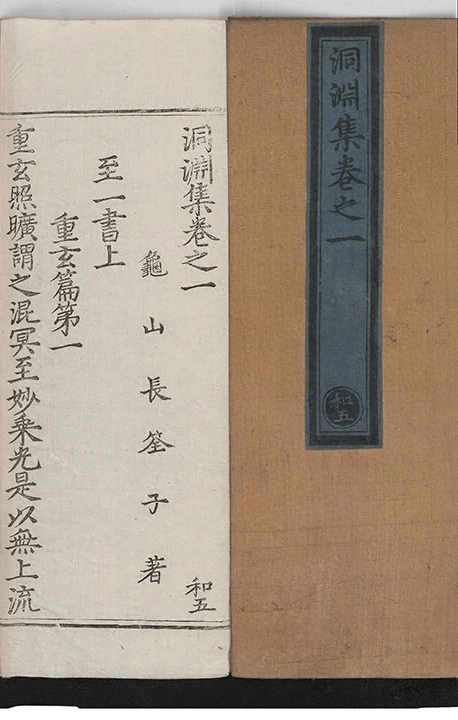 洞淵集卷之一
和五
洞淵集卷之一
和五
龜山長筌子著
至一書上
重玄篇第一
重玄照曠謂之混冥至妙乘光是以無上流